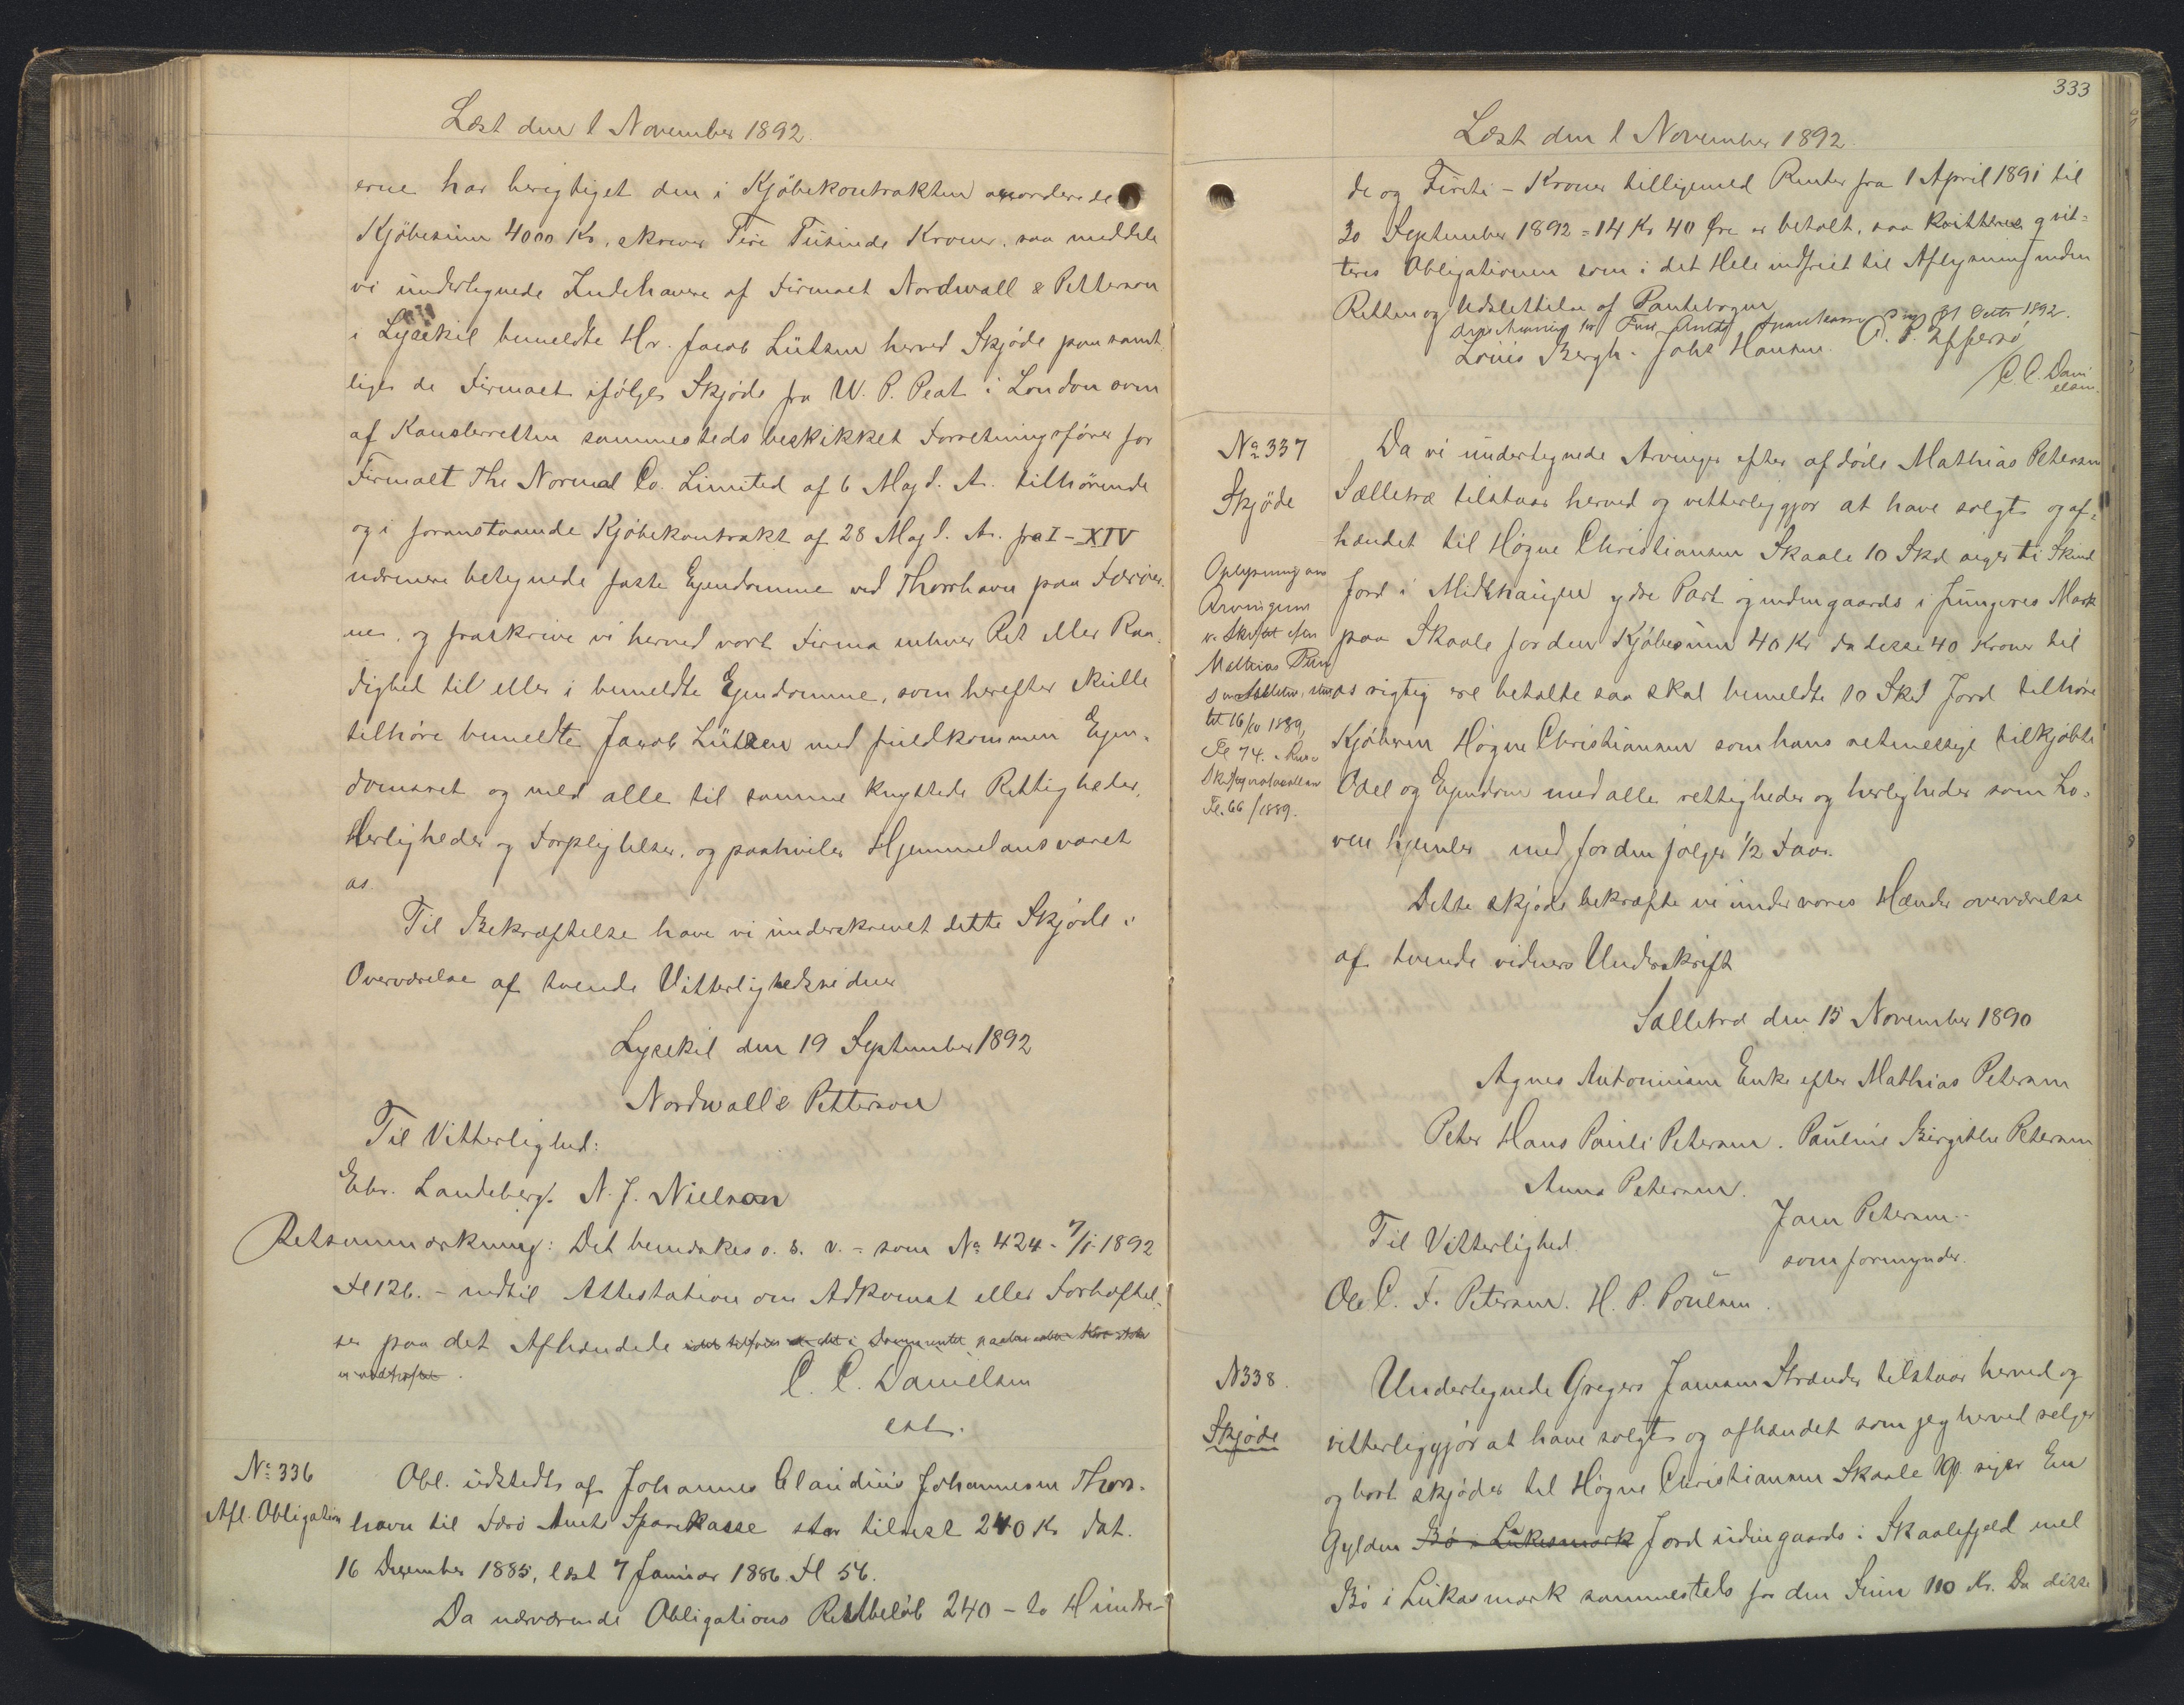 Læst den 1 November 1892.
erne har berigtiget den i Kjøbekontrakten accorderede
Kjøbesum 4000 Kr. skriver Fire Tusinde Kroner, saa meddele
vi undertegnede Indehavere af Firmaet Nordwall & Petterson
i Lysekil bemeldte Hr. Jacob Lützen herved Skjøde paa samt-
lige de Firmaet ifølge Skjøde fra W. P. Peat i London som
af Kanslerretten sammesteds beskikket Forretningsfører for
Firmaet The Normal Co. Limited af 6 Maj d. A. tilhørende
og i foranstaaende Kjøbekontrakt af 28 Maj d. A. fra I-XIV
nærmere betegnede faste Ejendomme ved Thorshavn paa Færøer-
ne, og fraskrive vi herved vort Firma enhver Ret eller Raa-
dighed til eller i bemeldte Ejendomme, som herefter skulle
tilhøre bemeldte Jacob Lützen med fuldkommen Ejen-
domsret og med alle til samme knyttede Rettigheder,
Herligheder og Forpligtelser, og paahviler Hjemmelansvaret
os.
Til Bekræftelse have vi underskrevet dette Skjøde i
Overværelse af tvende Vitterlighedsvidner
Lysekil den 19 September 1892
Nordwall & Petterson
Til Vitterlighed:
Ebr. Landeberg. N. J. Nielson
Retsanmærkning: Det bemærkes o. s. v. = som No 424 - 7/1-1892
Fl 126. - indtil Attestation om Adkomst eller Forhæftel-
ser paa det Afhændede
C. C. Danielsen
cst.
No 336
Afl. Obligation
Obl. udstedt af Johannes Claudius Johannesen Thors-
havn til Færø Amts Sparekasse stor tilrest 240 Kr dat.
16 December 1885, læst 7 Januar 1886. Fl 54.
Da nærværende Obligations Restbeløb 240 - to Hundre-
333
Læst den 1 November 1892.
de og Firti - Kroner tilligemed Renter fra 1 April 1891 til
30 September 1892 = 14 Kr 40 Øre er betalt, saa kvitteres qvit-
teres Obligationen som i det Hele indfriet til Aflysning inden
Retten og Udslettelse af Pantebogen
Direktionen for Færø Amts Sparekasse d. 31 Octr 1892.
Louis Bergh. Johs Hansen. O. P. Effersø
/ C. C. Dani
elsen.
No 337
Skjøde
Oplysning om
Arvingerne
v. Skiftet efter
Mathias Peter
sen Sælletræ, slut
tet 16/10 1889,
Fl 74.
Skifteprotocollen
Fl. 66/1889.
Da vi undertegnede Arvinger efter afdøde Mathias Petersen
Sælletræ tilstaar herved og vitterliggjør at have solgt og af-
hændet til Høgne Christiansen Skaale 10 Skd siger ti Skind
Jord i Midthaugen ydre Part og indengaards i Jungeres Mark
paa Skaale for den Kjøbesum 40 Kr da disse 40 Kroner til
os rigtig ere betalte saa skal bemeldte 10 Skd Jord tilhøre
Kjøberen Høgne Christiansen som hans retmessige tilkjøbte
Odel og Ejendom med alle rettigheder og herligheder som Lo-
ven hjemler med Jorden følger 1/2 Faar.
Dette skjøde bekræfte vi under vores Hænder overværelse
af tvende vidners Underskrift
Sælletræ den 15 November 1890
Agnes Antonisen Enke efter Mathias Petersen
Peter Hans Pauli Petersen. Pauline Birgithe Petersen
Anna Petersen.
Joen Petersen
som formynder.
Til Vitterlighed
Ole C. F. Petersen. H. P. Poulsen.
N 338.
Skjøde
Undertegnede Gregers Joensen Strænder tilstaar herved og
vitterliggjør at have solgt og afhændet som jeg herved selger
og bort skjøder til Høgne Christiansen Skaale 1 Gl. siger En
Gylden Bø i Lukasmark Jord udengaards i Skaalefjeld med
Bø i Lukasmark sammesteds for den Sum 110 Kr. Da disse